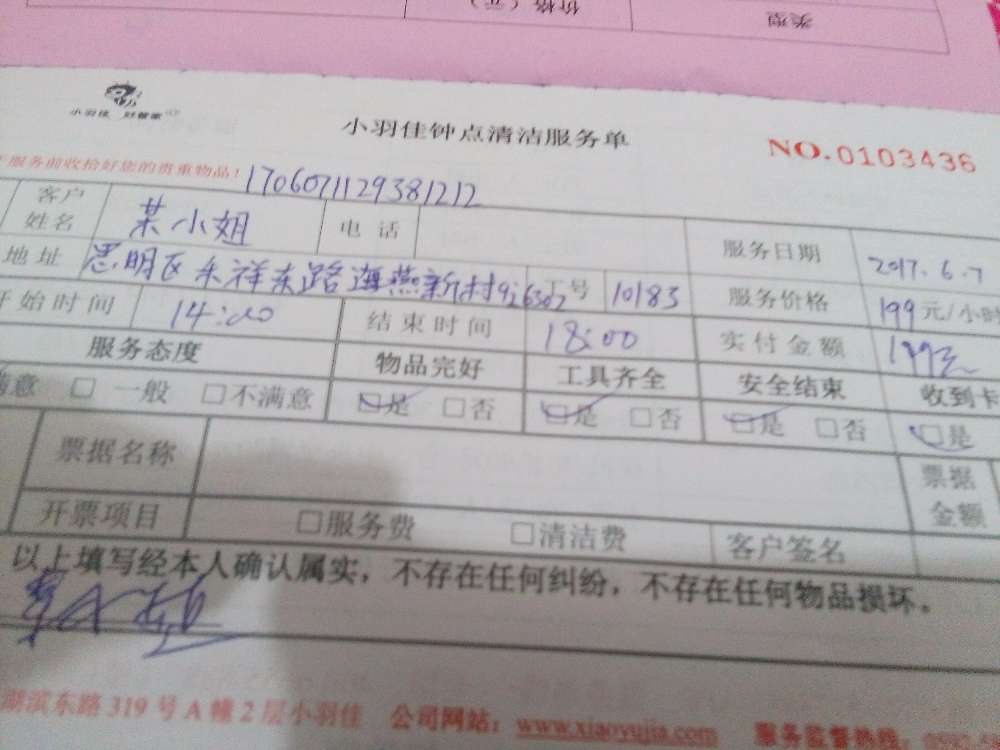 类型
价格（元）
小羽佳 好管家
小羽佳钟点清洁服务单
NO.0103436
服务前收拾好您的贵重物品！
1706071129381212
客户姓名 某小姐 电话 服务日期 2017.6.7
地址 思明区东祥东路海燕新村 工号 10183 服务价格 199元/小时
开始时间 14:00 结束时间 18:00 实付金额 199元
服务态度 物品完好 工具齐全 安全结束 收到卡
满意 □一般 □不满意 □是 □否 □是 □否 □是 □否 □是
票据名称 票据金额
开票项目 □服务费 □清洁费 客户签名
以上填写经本人确认属实，不存在任何纠纷，不存在任何物品损坏。
湖滨东路319号A幢2层小羽佳 公司网站：www.xiaoyujia.com 服务监督热线：0592-